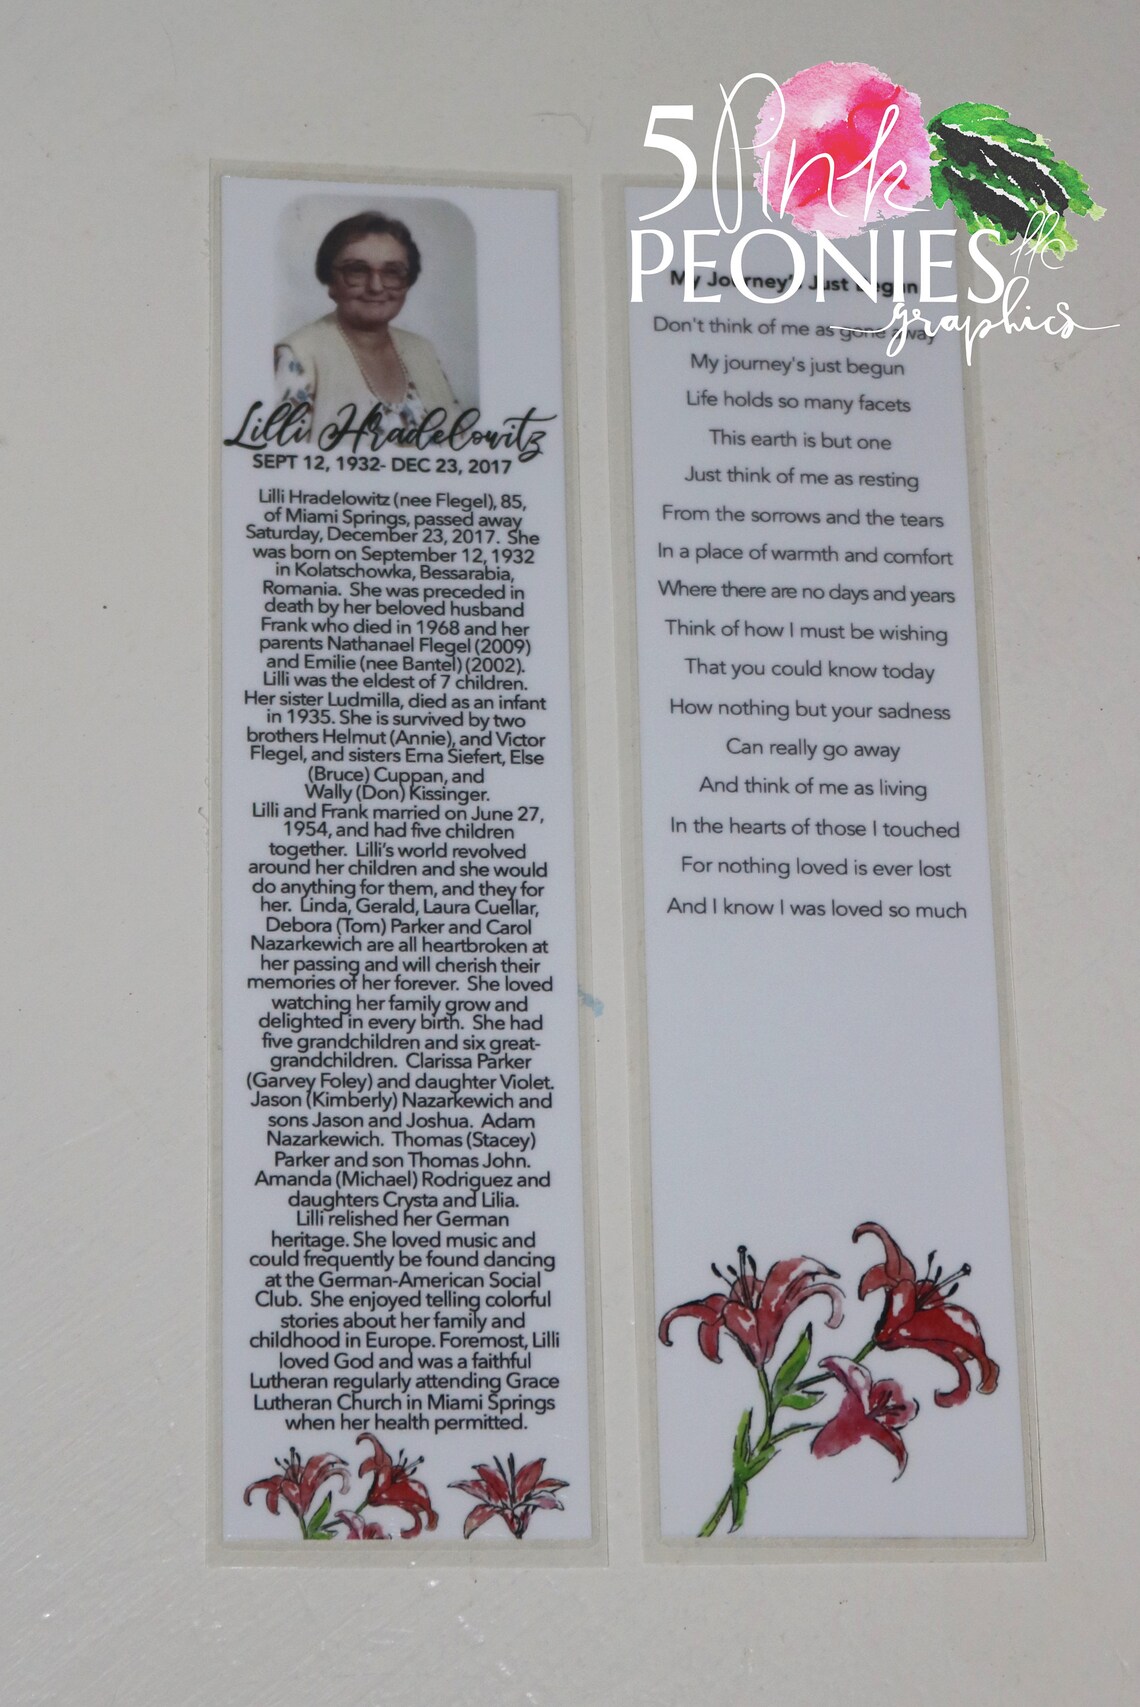 5 Pink
PEONIES llc
graphics
Lilli Hradelowitz
SEPT 12, 1932- DEC 23, 2017
Lilli Hradelowitz (nee Flegel), 85,
of Miami Springs, passed away
Saturday, December 23, 2017. She
was born on September 12, 1932
in Kolatschowka, Bessarabia,
Romania. She was preceded in
death by her beloved husband
Frank who died in 1968 and her
parents Nathanael Flegel (2009)
and Emilie (nee Bantel) (2002).
Lilli was the eldest of 7 children.
Her sister Ludmilla, died as an infant
in 1935. She is survived by two
brothers Helmut (Annie), and Victor
Flegel, and sisters Erna Siefert, Else
(Bruce) Cuppan, and
Wally (Don) Kissinger.
Lilli and Frank married on June 27,
1954, and had five children
together. Lilli's world revolved
around her children and she would
do anything for them, and they for
her. Linda, Gerald, Laura Cuellar,
Debora (Tom) Parker and Carol
Nazarkewich are all heartbroken at
her passing and will cherish their
memories of her forever. She loved
watching her family grow and
delighted in every birth. She had
five grandchildren and six great-
grandchildren. Clarissa Parker
(Garvey Foley) and daughter Violet.
Jason (Kimberly) Nazarkewich and
sons Jason and Joshua. Adam
Nazarkewich. Thomas (Stacey)
Parker and son Thomas John.
Amanda (Michael) Rodriguez and
daughters Crysta and Lilia.
Lilli relished her German
heritage. She loved music and
could frequently be found dancing
at the German-American Social
Club. She enjoyed telling colorful
stories about her family and
childhood in Europe. Foremost, Lilli
loved God and was a faithful
Lutheran regularly attending Grace
Lutheran Church in Miami Springs
when her health permitted.
My Journey's Just Begun
Don't think of me as gone away
My journey's just begun
Life holds so many facets
This earth is but one
Just think of me as resting
From the sorrows and the tears
In a place of warmth and comfort
Where there are no days and years
Think of how I must be wishing
That you could know today
How nothing but your sadness
Can really go away
And think of me as living
In the hearts of those I touched
For nothing loved is ever lost
And I know I was loved so much